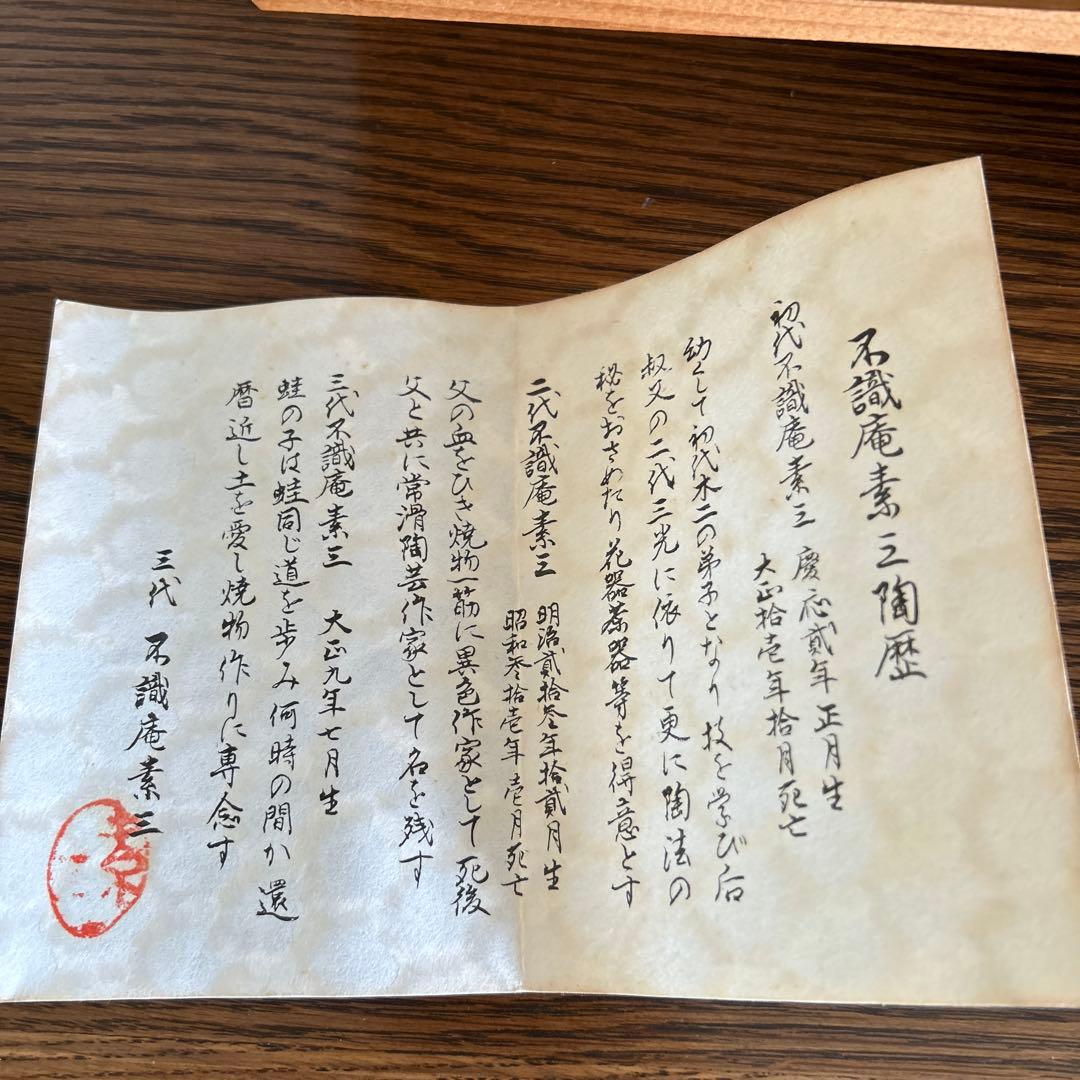 不識庵素三陶歴
初代不識庵素三
慶応貮年正月生
大正拾壱年拾月死亡
幼くして初代木二の弟子となり技を学び后
叔父の二代三光に依りて更に陶法の
秘をおさめたり花器茶器等を得意とす
二代不識庵素三
明治貮拾参年拾貮月生
昭和参拾壱年壱月死亡
父の血をひき焼物一筋に異色作家として死後
父と共に常滑陶芸作家として名を残す
三代不識庵素三 大正九年七月生
蛙の子は蛙同じ道を歩み何時の間か還
暦近し土を愛し焼物作りに専念す
三代 不識庵素三